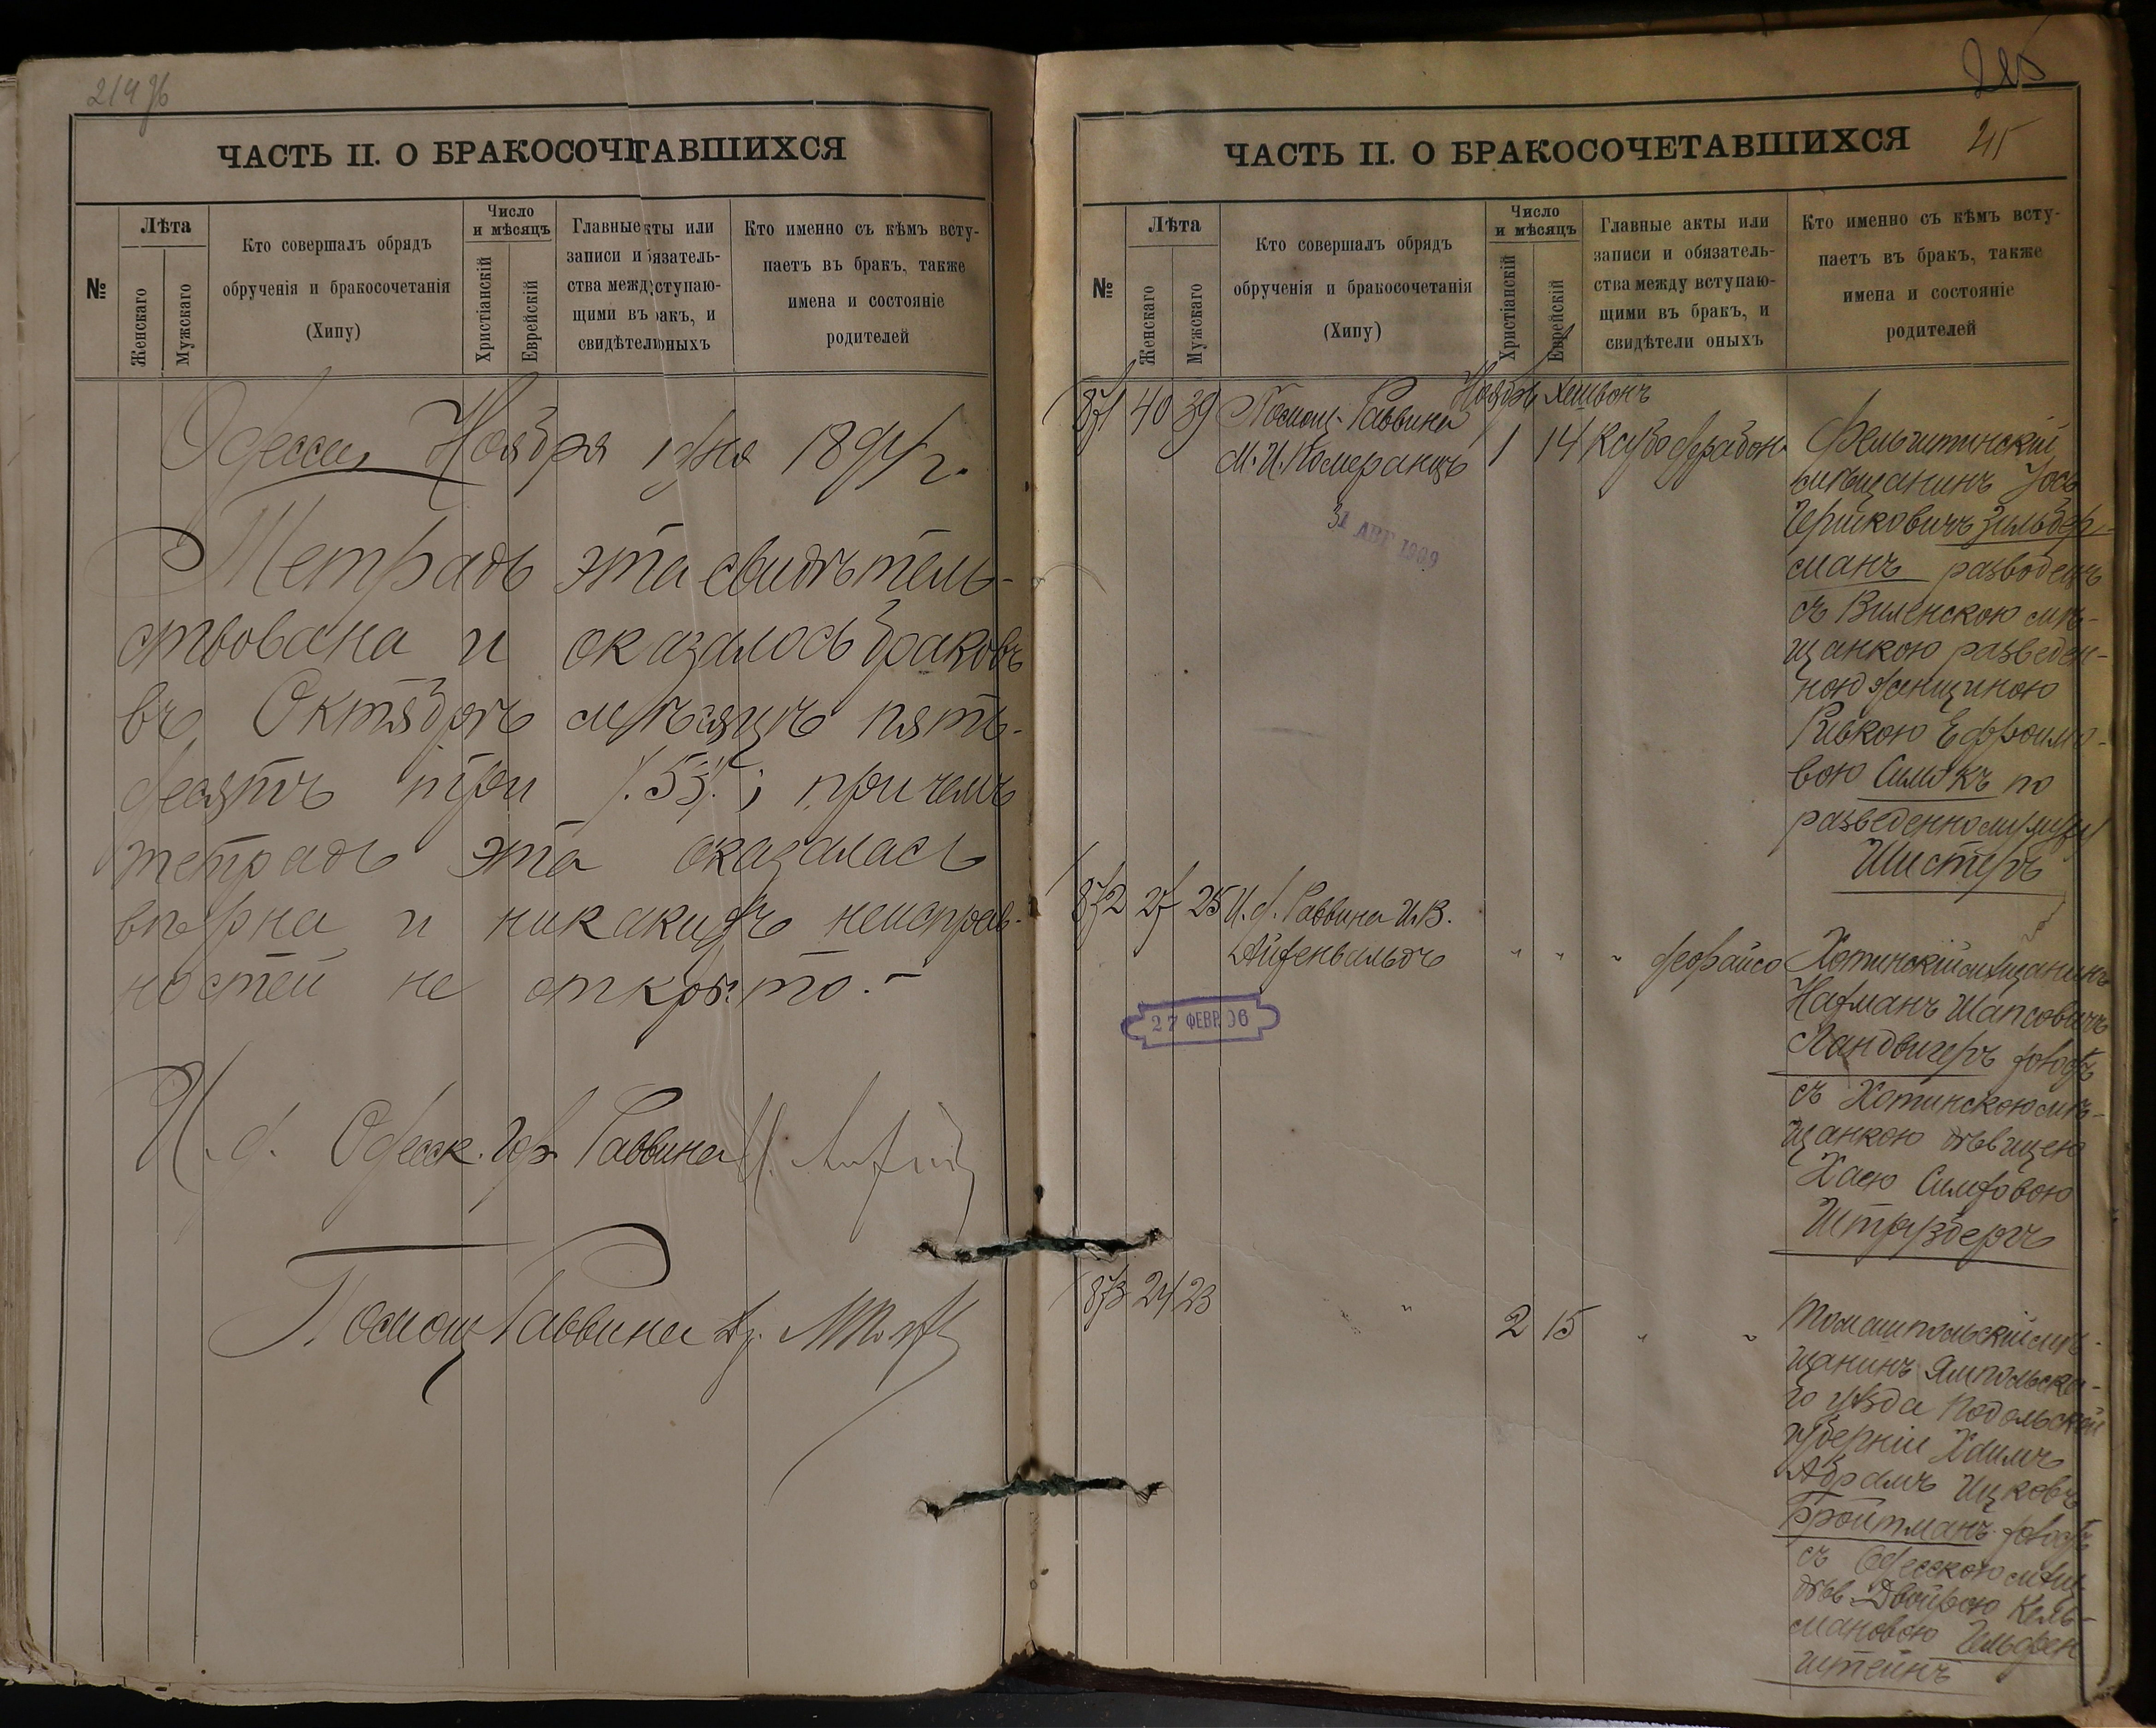 214 об
ЧАСТЬ II. О БРАКОСОЧЕТАВШИХСЯ
№
Лѣта
Женскаго
Мужскаго
Кто совершалъ обрядъ
обрученія и бракосочетанія
(Хипу)
Число
и мѣсяцъ
Христіанскій
Еврейскій
Главные акты или
записи и обязатель-
ства между вступаю-
щими въ бракъ, и
свидѣтели оныхъ
Кто именно съ кѣмъ всту-
паетъ въ бракъ, также
имена и состояніе
родителей
Одесса, Ноября 1 дня 1894 г.
Тетрадь эта свидѣтель-
ствована и оказалось браковъ
въ Октябрѣ мѣсяцѣ пять-
десятъ три /.53./; при чемъ
тетрадь эта оказалась
вѣрна и никакихъ неисправ-
ностей не открыто.-
И. д. Одесск. Гор. Раввина
Помощ Раввина
215
ЧАСТЬ II. О БРАКОСОЧЕТАВШИХСЯ
№
Лѣта
Женскаго
Мужскаго
Кто совершалъ обрядъ
обрученія и бракосочетанія
(Хипу)
Число
и мѣсяцъ
Христіанскій
Еврейскій
Главные акты или
записи и обязатель-
ства между вступаю-
щими въ бракъ, и
свидѣтели оныхъ
Кто именно съ кѣмъ всту-
паетъ въ бракъ, также
имена и состояніе
родителей
Ноябрь Хешвонъ
871 40 39 Помощ. Раввина
М. И. Померанцъ 1 14
31 АВГ 1909
Фельштинскій
мѣщанинъ Іось
Гершковичъ Зильбер-
манъ разводецъ
съ Виленскою мѣ-
щанкою разведен-
ною женщиною
Ривкою Ефроимо-
вою по
разведенному мужу
Шистеръ
872 27 25 И. д. Раввина И. В.
Айзенвальдъ " " " деорайсо
27 ФЕВР. 06
Хотинскій мѣщанинъ
Нахманъ Шапсовичъ
Ландвигеръ холостъ
съ Хотинскою мѣ-
щанкою дѣвицею
Хаею Симховою
Штразбергъ
873 24 23 " 2 15 " "
Томашпольскій мѣ-
щанинъ Ямпольска-
го уѣзда Подольской
губерніи Хаимъ
Абрамъ Ицковъ
Бройтманъ холостъ
съ Одесскою мѣщ.
дѣв. Двойрою Кель-
мановою Гельфен
штейнъ